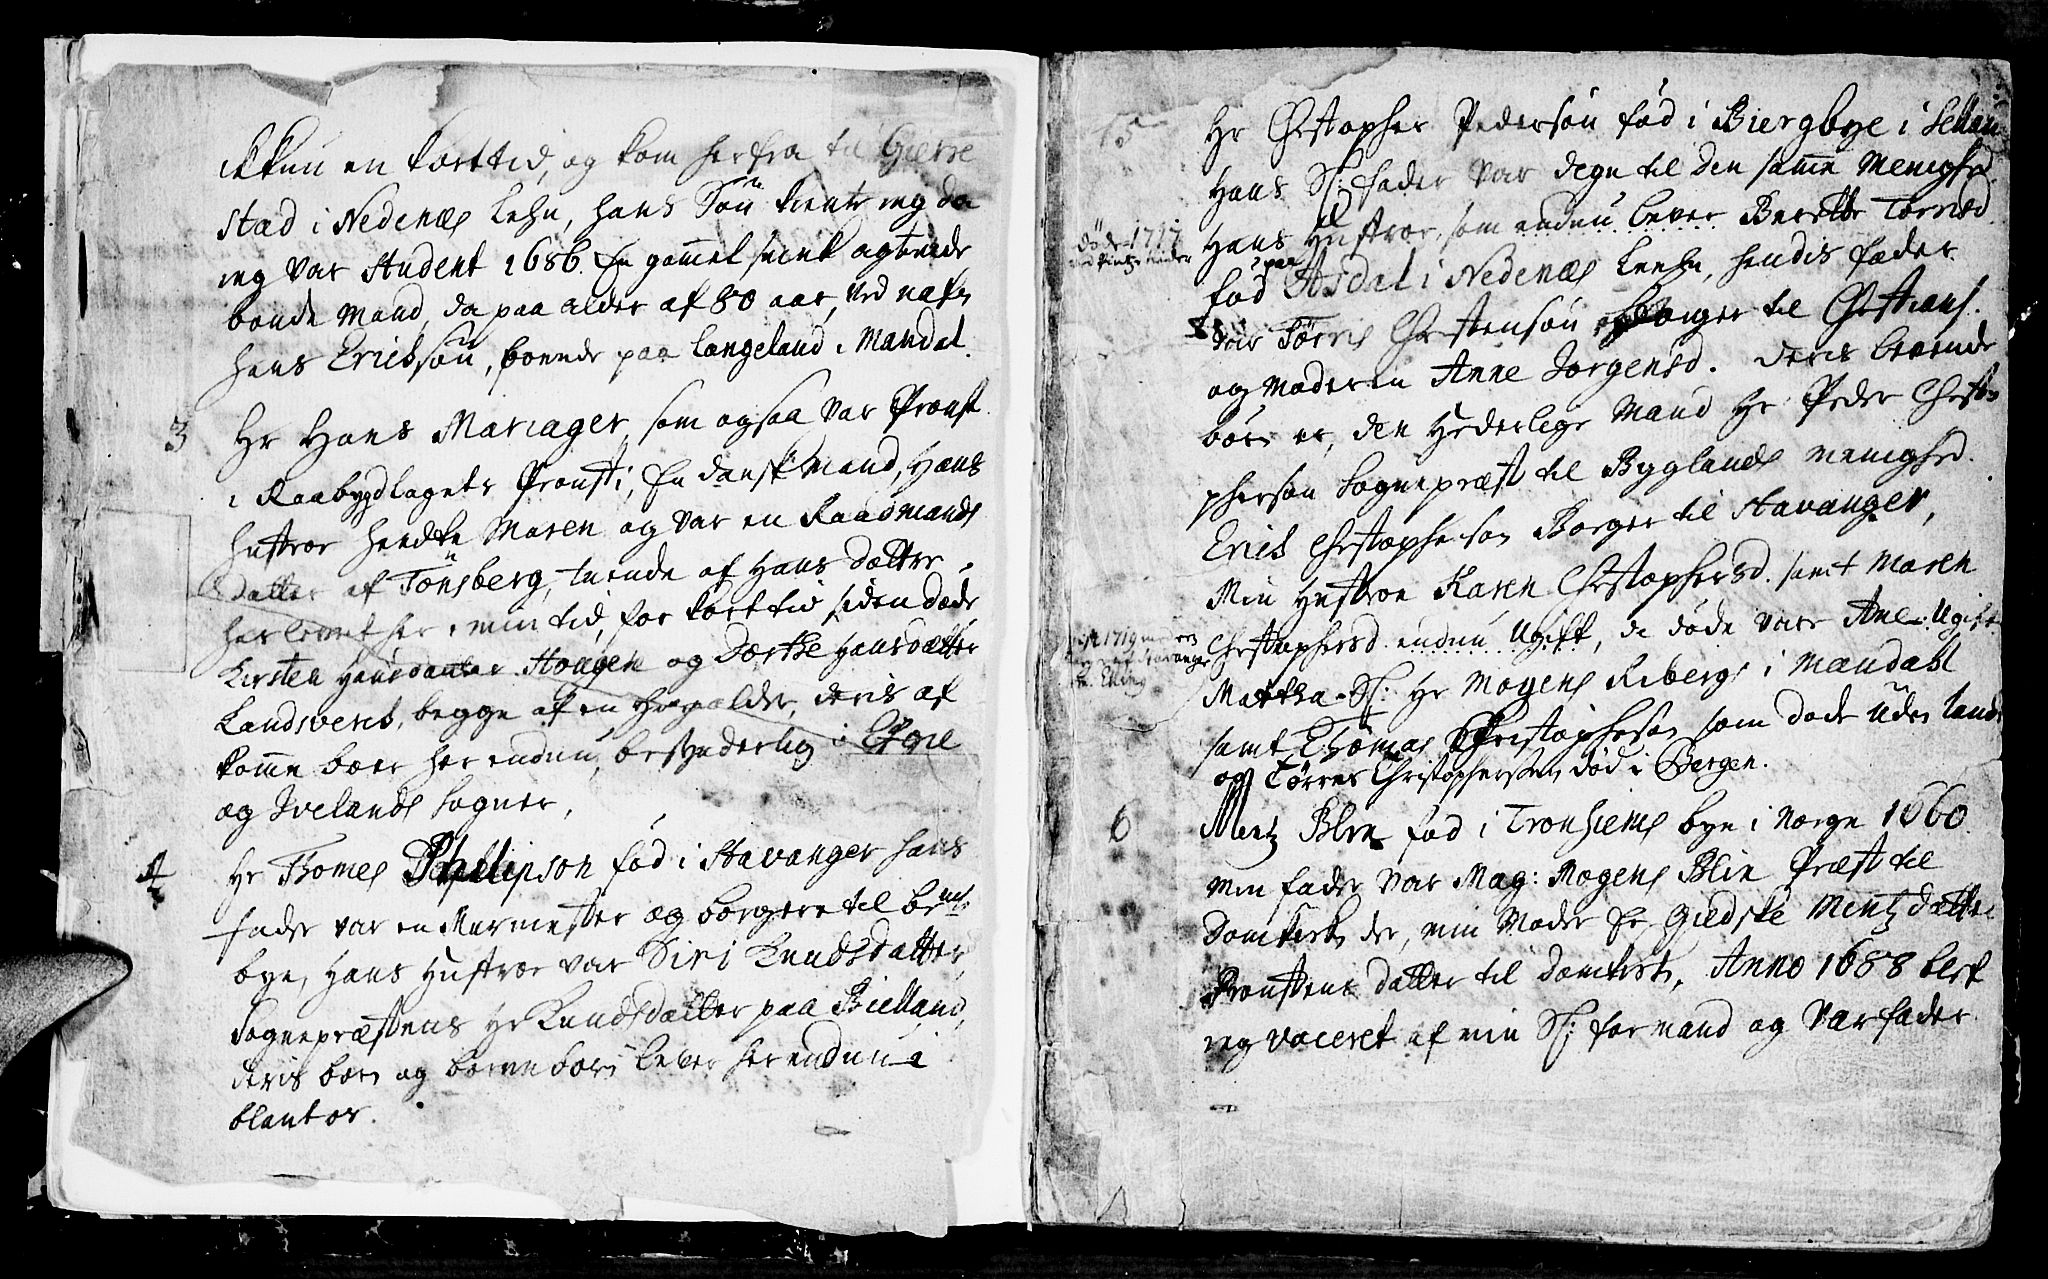 ikkun en kort tid, og kom herfra til Gierre
stad i Nedenæs Lehn, hans Søn kiente ieg da
ieg var Student 1686. En gammel smuk agtende
bonde Mand, da paa alder af 80 aar, ved nafn
hans Erichsøn, boende paa Langeland i Mandal.
3 Hr Hans Mariager, som ogsaa var Proust
i Raabygdlagets Prousti, En dansk Mand, Hans
hustroe heedte Maren og var en Raadmands
datter af Tønsberg, tuende af Hans døttre
har levet her i min tid, for kort tid siden døde
Kirsten Hansdaatter Hougen og Dorthe Hansdatter
Landsverk, begge af en høy alder, deris af
komme boer her endnu, besynderlig i Egne
og Ivelands Sogner.
4 Hr Thomes Phillipson fød i Stavanger hans
fader var en Murmester og borgere til bem:te
bye, Hans Hustroe var Siri Knudsdatter
Sognepræstens Hr Knuds datter paa Bielland,
deris børn og børnebørn lever her endnu i
blant os.
5 Hr Chrstopher Pedersøn fød i Biergbye i Sellan
Hans Sl: fader var degn til den samme Menighed
Hans Hustroe, som endnu lever Berette Torrisd
døde 1717
fød paa Asdal i Nedenæs Leehn, hendis fader
var Tørris Chrstensøn borger til Chrstians.
og Moderen Anne Jorgensd. Deris levende
børn er, den Hederlige Mand Hr Peder Chrsto
phersøn Sognepræst til Byglands Menighed.
Erich Chrstophersøn Borger til Stavanger,
Min Hustroe Karen Chrstophersd. samt Maren
Chrstophersd. endnu Ugift, de døde vare Ane Ugift
1719
Martha Sl: Hr Mogens Ribergs i Mandahl
samt Thomas Christophersøn som døde uden lands
og Tørres Christophersen død i Bergen.
6 Mentz Blix fød i Tronhiems bye i Norge 1660.
Min fader var Mag: Mogens Blix Præst til
Domkirken der, min Moder Er Giedske Mentzdatter
Proustens datter til Domkirk, Anno 1688 blef
ieg voceret af min Sl: formand og Værfader